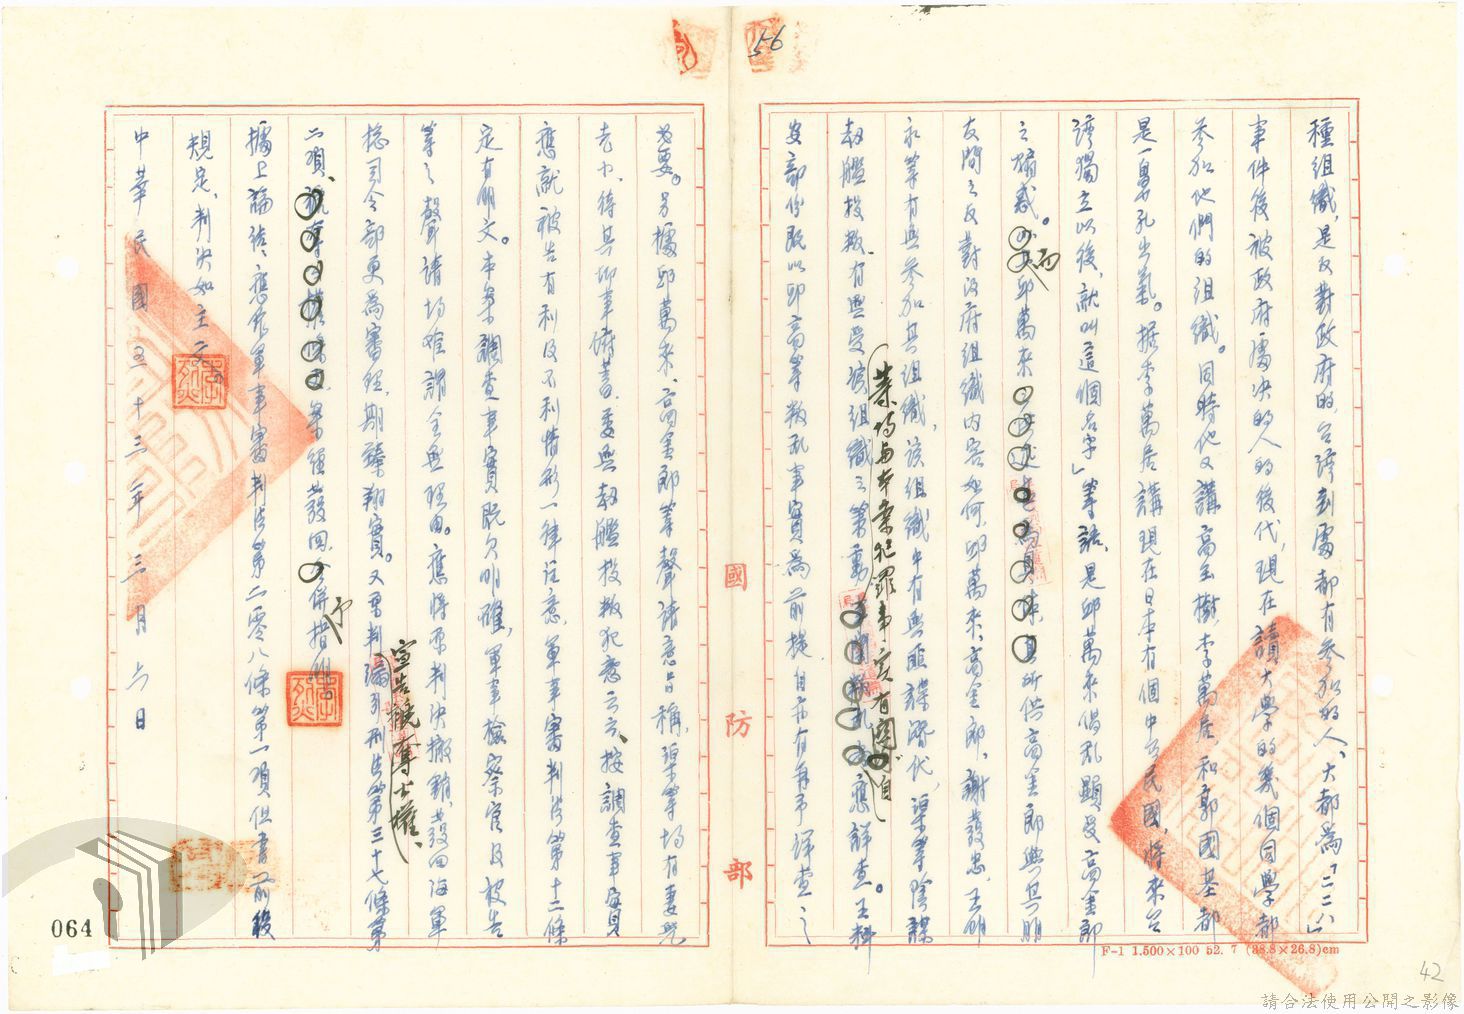 56
種組織,是反對政府的,台灣到處都有參加的人,大都為「二二八」
事件後被政府處決的人的後代,現在讀大學的幾個同學都
參加他們的組織。同時他又講高玉樹,李萬居,和郭國基都
是一鼻孔出氣。據李萬居講現在日本有個中台民國,將來台
灣獨立以後,就叫這個名字」等語,是邱萬來倡亂顯受高金郎
之煽惑。而邱萬來 所供高金郎與其朋
友間之反對政府組織內容如何,邱萬來、高金郎、謝發忠、王明
永等有無參加其組織,該組織中有無匪諜滲代,渠等陰謀
劫艦投叛,有無受該組織之策動 等均與本案犯罪事實有關自應詳查。王料
安部份既以邱高等叛亂事實為前提,自亦有再予詳查之
國防部
F-1 1.500×100 52. 7 (38.8×26.8)cm
必要。另據邱萬來、高金郎等聲請意旨稱,渠等均有妻兒
老小,待其仰事俯蓄,委無劫艦投叛犯意云云,按調查事實
應就被告有利及不利情形一律注意,軍事審判法第十二條
定有明文。本案調查事實既欠明確,軍事檢察官及被告
等之聲請均難謂全無理由。應將原判決撤銷,發回海軍
總司令部更為審理,期臻翔實。又原判漏引刑法第三十七條第
二項、宣告褫奪公權、案經發回,併予指明。
據上論結,應依軍事審判法第二零八條第一項但書前段
規定,判決如主文
中華民國五十三年三月六日
064
42
請合法使用公開之影像